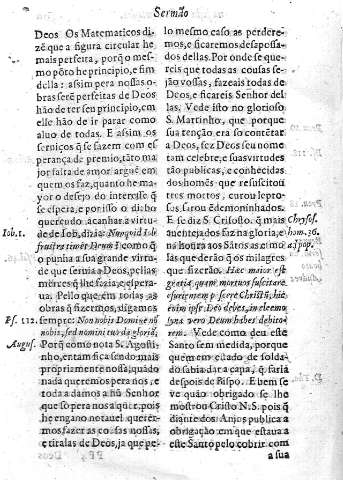 Sermão
Deos Os Matematicos di-
zẽ que a figura circular he
mais perfeita, porq̃ o mes-
mo põto he principio, e fim
della: assim pera nossas o-
bras serẽ perfeitas de Deos
hão de ter seu principio, em
elle hão de ir parar como
aluo de todas. E assim os
seruiços q̃ se fazem com es-
perança de premio, tãto ma
jor falta de amor arguẽ em
quem os faz, quanto he ma-
yor o desejo do interesse q̃
se espera, e por isso o diabo
querendo acanhar a virtu-
Iob. 1.
de de Iob, dizia: Nunquid Iob
frustra timet Deum? como q̃
o punha a sua grande virtu-
de que seruia a Deos, pellas
mercês q̃ lhe fazia, e espera-
ua. Pello que em todas as
obras q̃ fizermos, digamos
Ps. 112.
sempre: Non nobis Domine nõ
nobis, sed nomini tuo da gloriã,
Augus.
Porq̃ como nota S. Agosti-
nho, entam fica sendo mais
propriamente nossa, quãdo
nada queremos pera nos, e
toda a damos a hũ Senhor
que so pera nos a quer, pois
he engano notauel querer-
mos fazer as cousas nossas,
e tiralas de Deos, ja que pe-
lo mesmo caso as perdere-
mos, e ficaremos desapossa-
dos dellas. Por onde se que-
reis que todas as cousas se-
jão vossas, fazei as todas de
Deos, e ficareis Senhor del-
las. Vede isto no glorioso
S. Martinho, que porque
sua tenção era so contẽtar
a Deos, fez Deos seu nome
tam celebre, e suas virtudes
tão publicas, e conhecidas
dos homẽs que resuscitou
tres mortos, curou lepro-
sos, sarou ẽdemoninhados.
E se diz S. Crisosto. q̃ mais
Chrysos.
auentejados faz na gloria, e
hom. 36.
na hõura aos Sãtos as esmo
ad pop.
las que derão q̃ os milagres
que fizerão. Hæc maior est
gratia, quam mortuos suscitare
esurientem pascere Christũ, hic
enim ipsi Deo debes, in eleemo
syna vero Deum habes debito-
rem. Vede como deu este
Santo sem medida, porque
quẽ em citado de solda-
do sabia dar a capa, q̃ faria
despois de Bispo. E bem se
ve quão obrigado se lhe
mostrou Cristo N. S. pois q̃
diante dos Anjos publica a
obrigação em que estaua a
este Santo pelo cobrir com
a sua